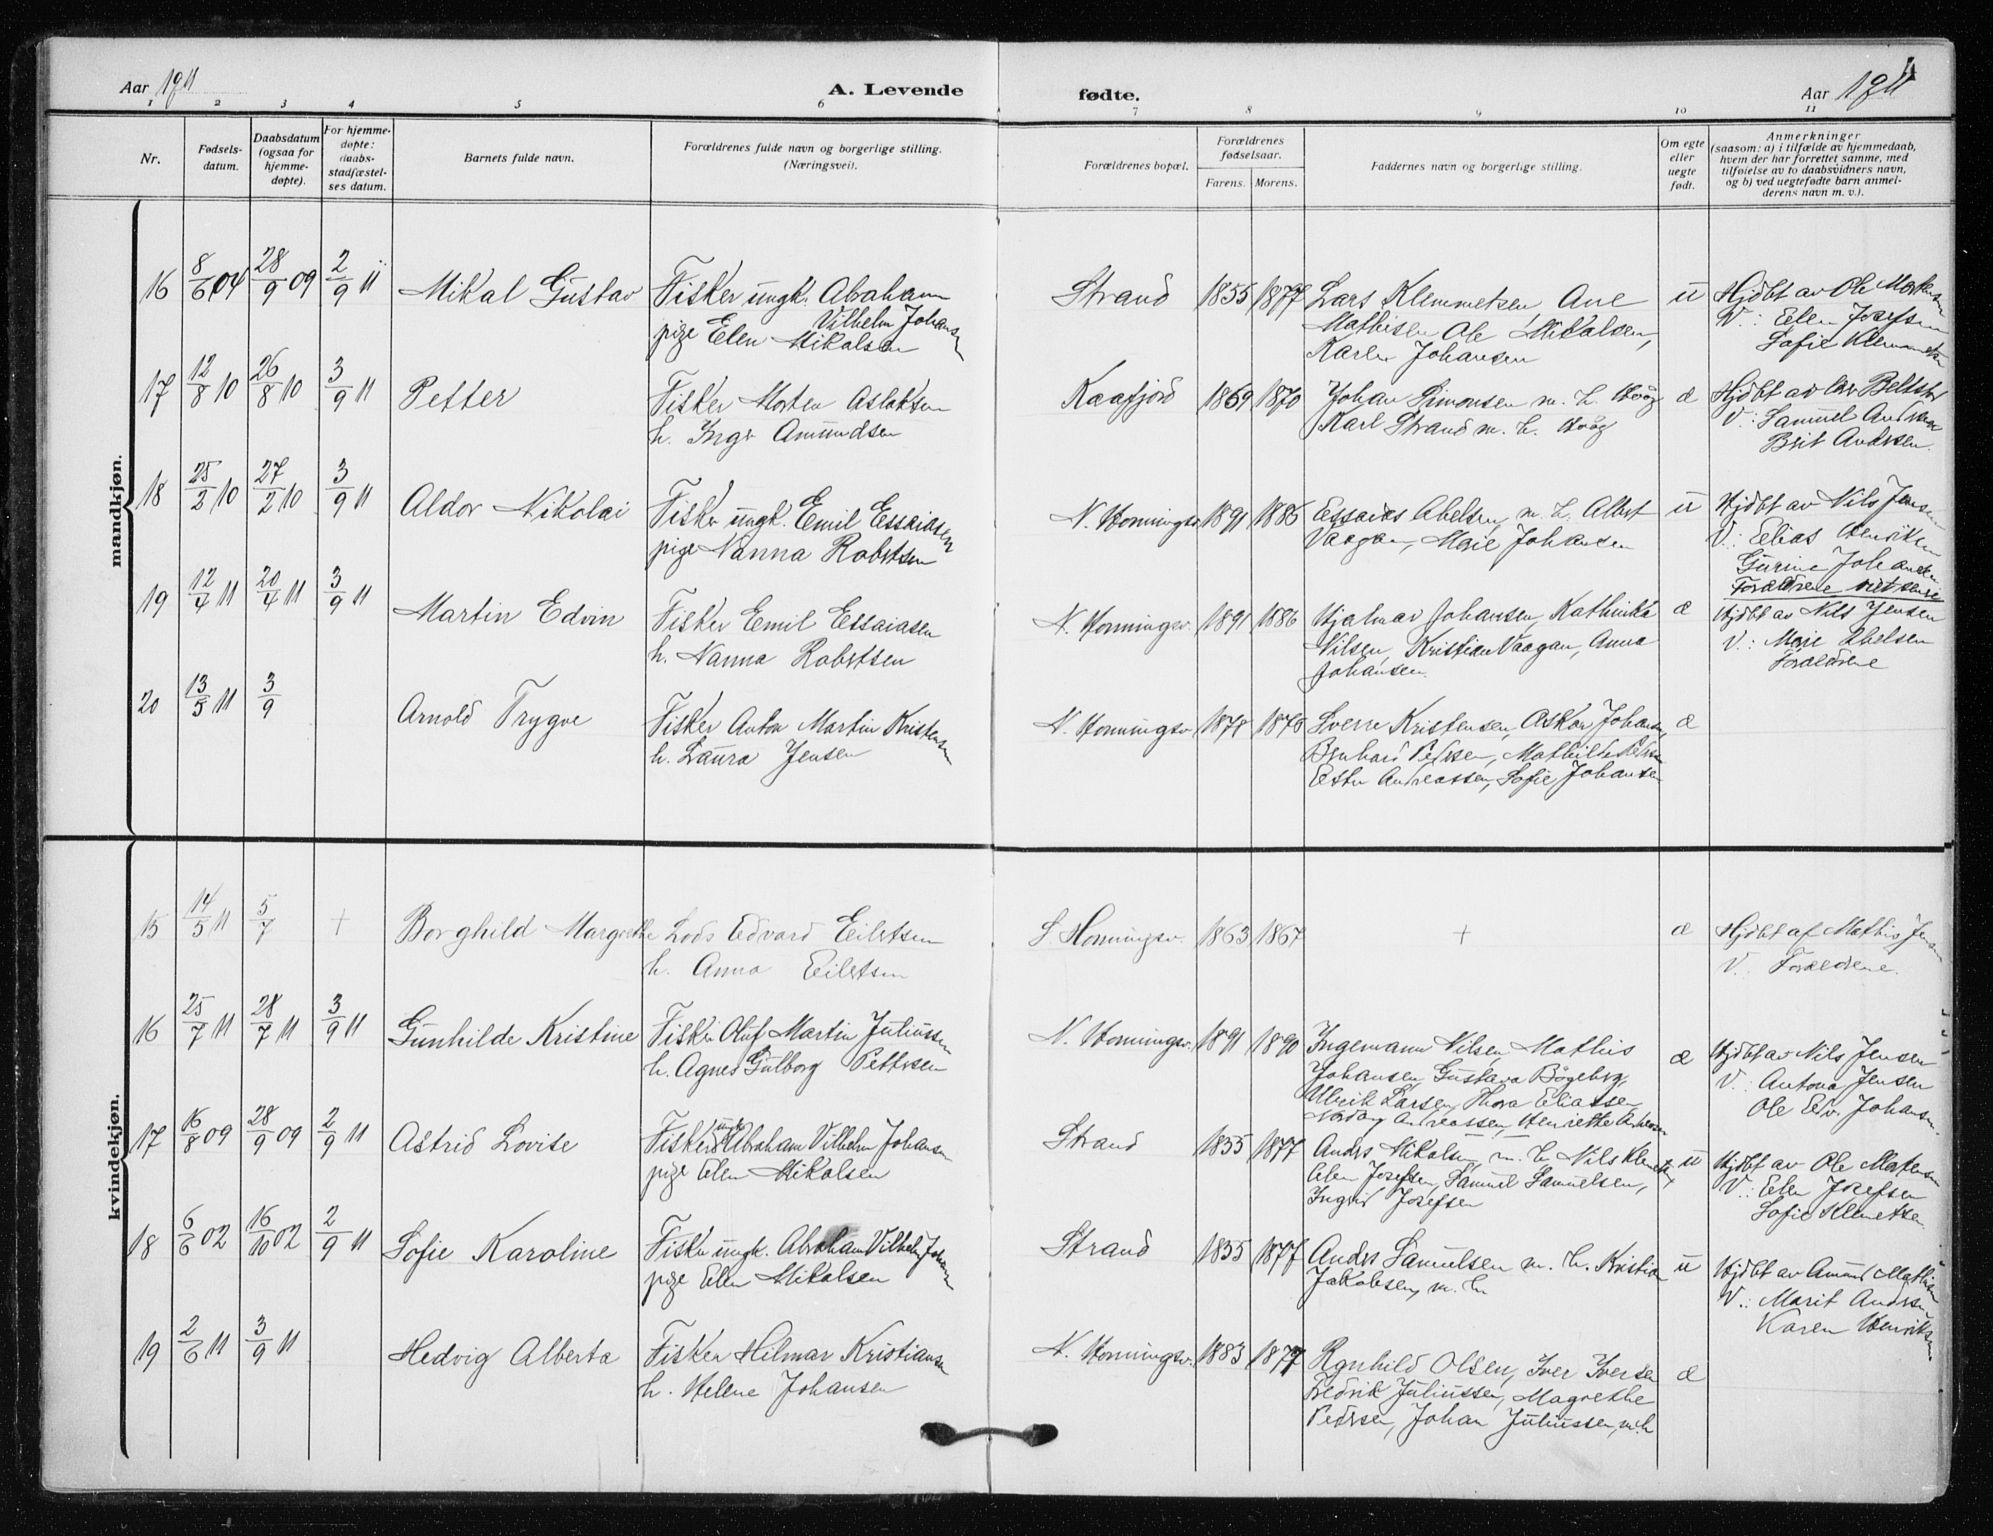 Aar 1911
A. Levende
fødte.
Aar 1911
4
1 2 3 4 5 6 7 8 9 10 11
Nr.
Fødsels-
datum.
Daabsdatum
(ogsaa for
hjemme-
døpte).
For hjemme-
døpte:
daabs-
stadfæstel-
ses datum.
Barnets fulde navn.
Forældrenes fulde navn og borgerlige stilling.
(Næringsvei).
Forældrenes bopæl.
Forældrenes
fødselsaar.
Farens. Morens.
Faddernes navn og borgerlige stilling.
Om egte
eller
uegte
født.
Anmerkninger
(saasom: a) i tilfælde av hjemmedaab,
hvem der har forrettet samme, med
tilføielse av to daabsvidners navn,
og b) ved uegtefødte barn anmel-
derens navn m. v.).
mandkjøn.
16 8/6 04 28/9 09 2/9 11 Mikal Gustav Fisker ungk. Abraham Strand 1855 1877 Lars Klemmetsen, Ane u Hjdbt av Ole Mortensen
Vilhelm Johansen Mathisen Ole Mikalsen, V.: Elen Josefsen
pige Elen Mikalsen Karen Johansen Sofie Klemmetsen
17 12/8 10 26/8 10 3/9 11 Petter Fisker Morten Aslaksen Kaafjord 1869 1870 Johan Simonsen m. h. æ Hjdbt av
h. Inger Amundsen Karl Strand m. h. V.: Samuel Andersen
Brit Andersen.
18 25/2 10 27/2 10 3/9 11 Aldor Nikolai Fisker ungk. Emil Essaiasen N. Honningsv. 1891 1886 Essaias Abelsen, m. h. Albert u Hjdbt av Nils Jensen
pige Nanna Robertsen Vaagan, Marie Johansen V.: Elias Henriksen
Gurine Johansen
Forældrene viet senere
19 12/4 11 20/4 11 3/9 11 Martin Edvin Fisker Emil Essaiasen N. Honningsv. 1891 1886 Hjalmar Johansen, Kathinka æ Hjdbt av Nils Jensen
h. Nanna Robertsen Nilsen, Kristian Vaagan, Anna V.: Marie Abelsen
Johansen. Forældrene
20 13/5 11 3/9 Arnold Trygve Fisker Anton Martin Kristensen N. Honningsv. 1878 1876 Sverre Kristensen, Askar Johansen, æ
h. Laura Jensen Bernhard Pedersen, Mathilde Pedersen
Ester Andreassen, Sofie Johansen
kvindekjøn.
15 14/5 11 5/7 + Borghild Margrethe Lods Edvard Eilertsen S Honningsv. 1863 1867 + æ Hjdbt af Mathis Jensen
h. Anna Eilertsen V. Forældrene.
16 25/7 11 28/7 11 3/9 11 Gunhilde Kristine Fisker Oluf Martin Juliussen N. Honningsv. 1891 1890 Ingemann Nilsen, Mathis æ Hjdbt av Nils Jensen
h. Agnes Gulborg Pettersen Johansen, Gustava Bøgeberg, V. Antona Jensen
Ulrik Larsen, Thora Eliassen, Ole Edv. Johansen.
Nordang Andreassen, Henriette Andreassen
17 16/8 09 28/9 09 2/9 11 Astrid Lovise Fisker ungk. Abraham Vilhelm Johansen Strand 1855 1877 Anders Mikalsen, m. h. Nils Klemetsen, u Hjdbt av Ole Mortensen
pige Elen Mikalsen Elen Josefsen, Samuel Samuelsen, V.: Elen Josefsen
Ingrid Josefsen Sofie Klemetsen
18 6/6 02 16/10 02 2/9 11 Sofie Karoline Fisker ungk. Abraham Vilhelm Johansen Strand 1855 1877 Anders Samuelsen m. h. Kristian u Hjdbt av Amund Mathisen
pige Elen Mikalsen Jakobsen, m. h V.: Marit Andersen
Karen Henriksen
19 2/6 11 3/9 11 Hedvig Alberta Fisker Hilmar Kristiansen N. Honningsv. 1883 1877 Rgnhild Olsen, Iver Iversen æ
h. Helene Johansen Fredrik Juliussen, Magrethe
Pedersen, Johan Juliussen, m. h